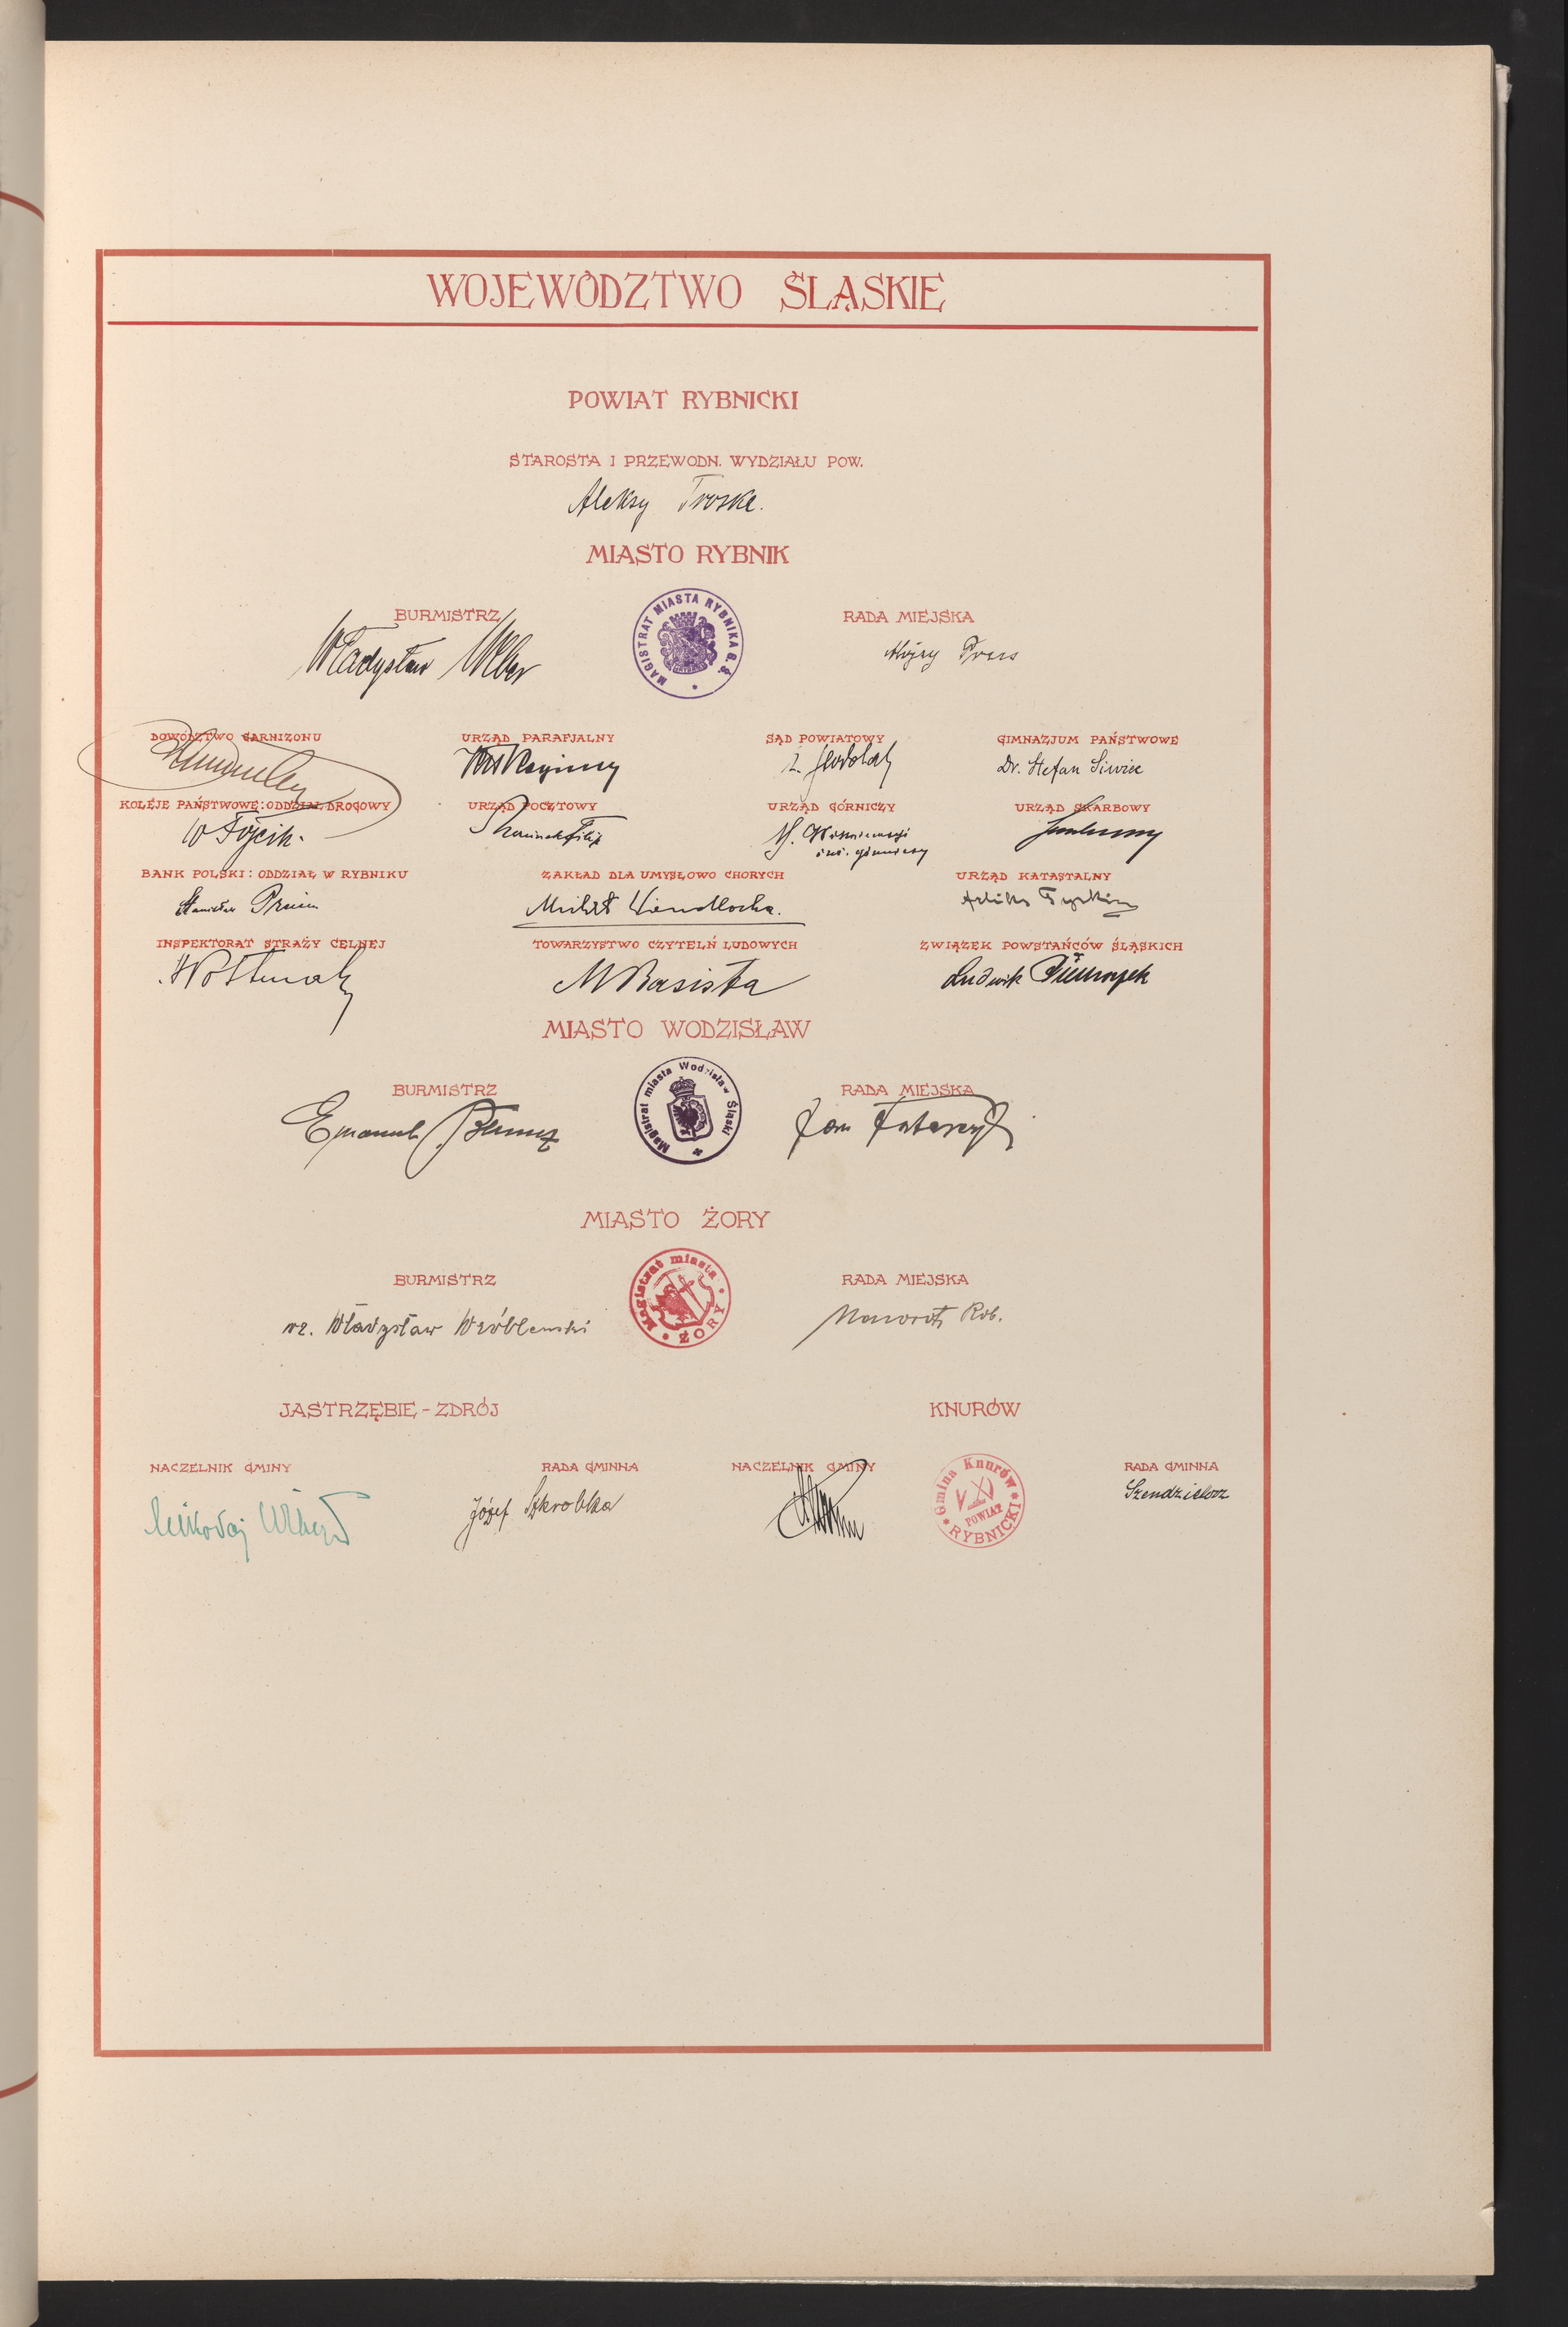 WOJEWÓDZTWO ŚLĄSKIE
POWIAT RYBNICKI
STAROSTA I PRZEWODN. WYDZIAŁU POW.
Aleksy Troska.
MIASTO RYBNIK
BURMISTRZ
Władysław Weber
MAGISTRAT MIASTA RYBNIKA G.Ś.
RADA MIEJSKA
Alojzy Prus
DOWÓDZTWO GARNIZONU
URZĄD PARAFJALNY
SĄD POWIATOWY
GIMNAZJUM PAŃSTWOWE
Dr. Stefan Siwiec
KOLEJE PAŃSTWOWE: ODDZIAŁ DROGOWY
URZĄD POCZTOWY
URZĄD GÓRNICZY
URZĄD SKARBOWY
Wójcik.
Filip
inż. górniczy
BANK POLSKI: ODDZIAŁ W RYBNIKU
ZAKŁAD DLA UMYSŁOWO CHORYCH
URZĄD KATASTALNY
Stanisław
Wendlocha.
INSPEKTORAT STRAŻY CELNEJ
TOWARZYSTWO CZYTELŃ LUDOWYCH
ZWIĄZEK POWSTAŃCÓW ŚLĄSKICH
M Basista
Ludwik Piechoczek
MIASTO WODZISŁAW
BURMISTRZ
Emanuel
Magistrat miasta Wodzisław Śląski
RADA MIEJSKA
Jan
MIASTO ŻORY
BURMISTRZ
wz. Władysław Wróblewski
Magistrat miasta ŻORY
RADA MIEJSKA
Nawrot Rob.
JASTRZĘBIE-ZDRÓJ
KNURÓW
NACZELNIK GMINY
RADA GMINNA
NACZELNIK GMINY
RADA GMINNA
Mikołaj Witczak
Józef Szkrobka
Gmina Knurów
POWIAT
RYBNICKI
Szendzielorz